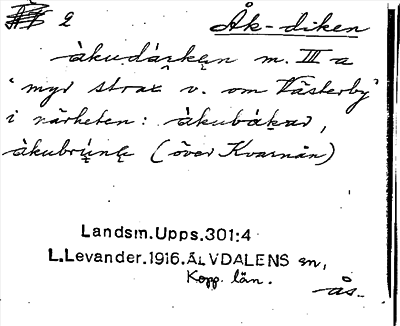 2 Åk-diken
åkudáskęn m. III a
"myr strax v. om Västerby"
i närheten: åkubákar,
åkubrųnę (över Kvarnån)
Landsm.Upps.301:4
L.Levander.1916.ÄLVDALENS sn,
Kopp. län.
ås.